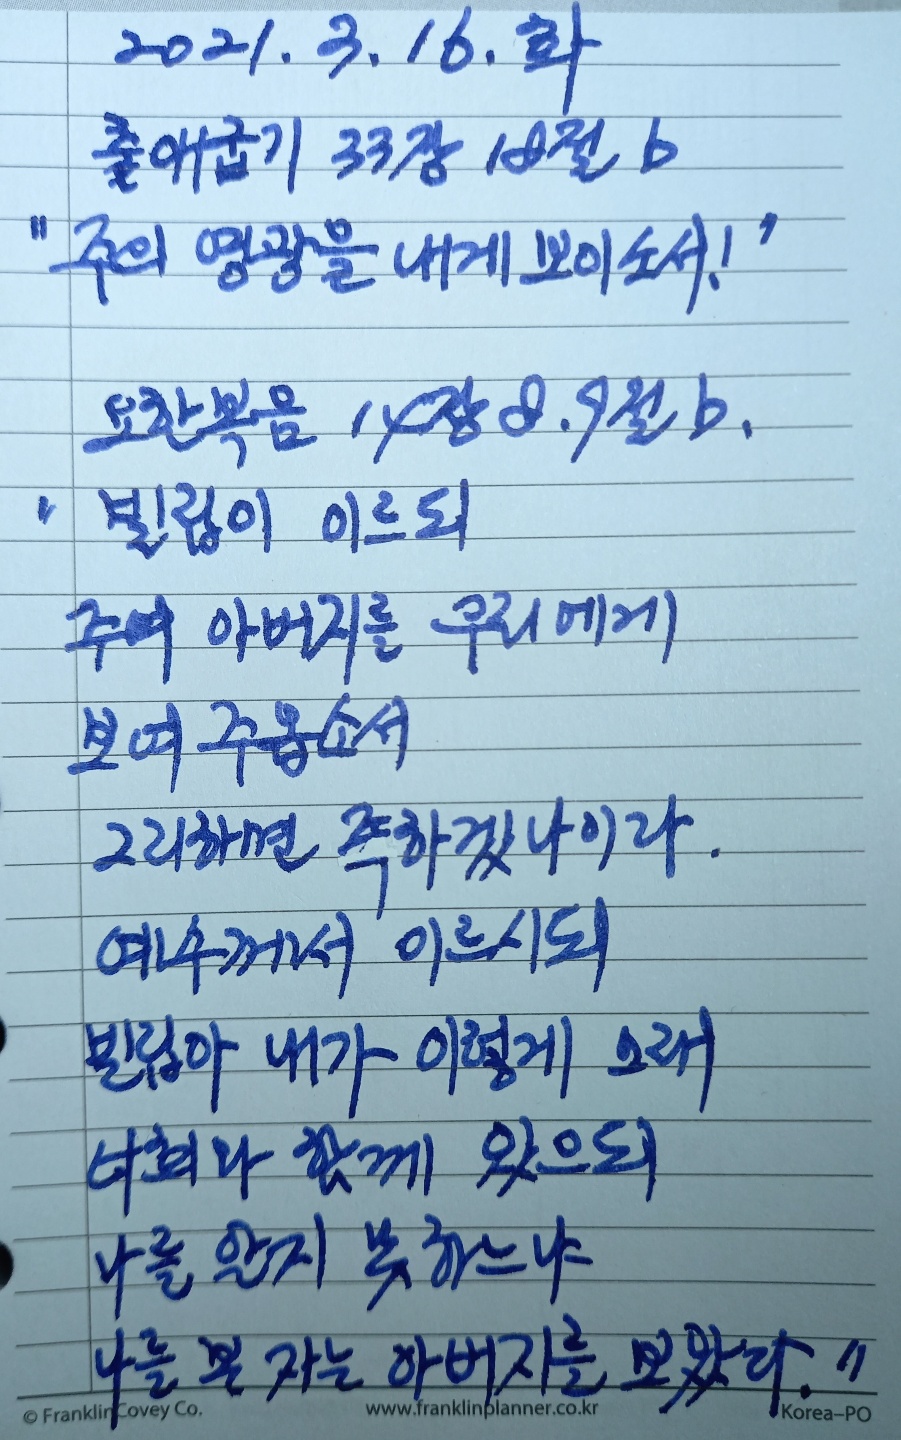 2021. 3. 16. 화
출애굽기 33장 18절 b
"주의 영광을 내게 보이소서!"
요한복음 14장 8.9절 b.
"빌립이 이르되
주여 아버지를 우리에게
보여 주옵소서
그리하면 족하겠나이다.
예수께서 이르시되
빌립아 내가 이렇게 오래
너희와 함께 있으되
나를 알지 못하느냐
나를 본 자는 아버지를 보았다."
© FranklinCovey Co. www.franklinplanner.co.kr Korea-PO